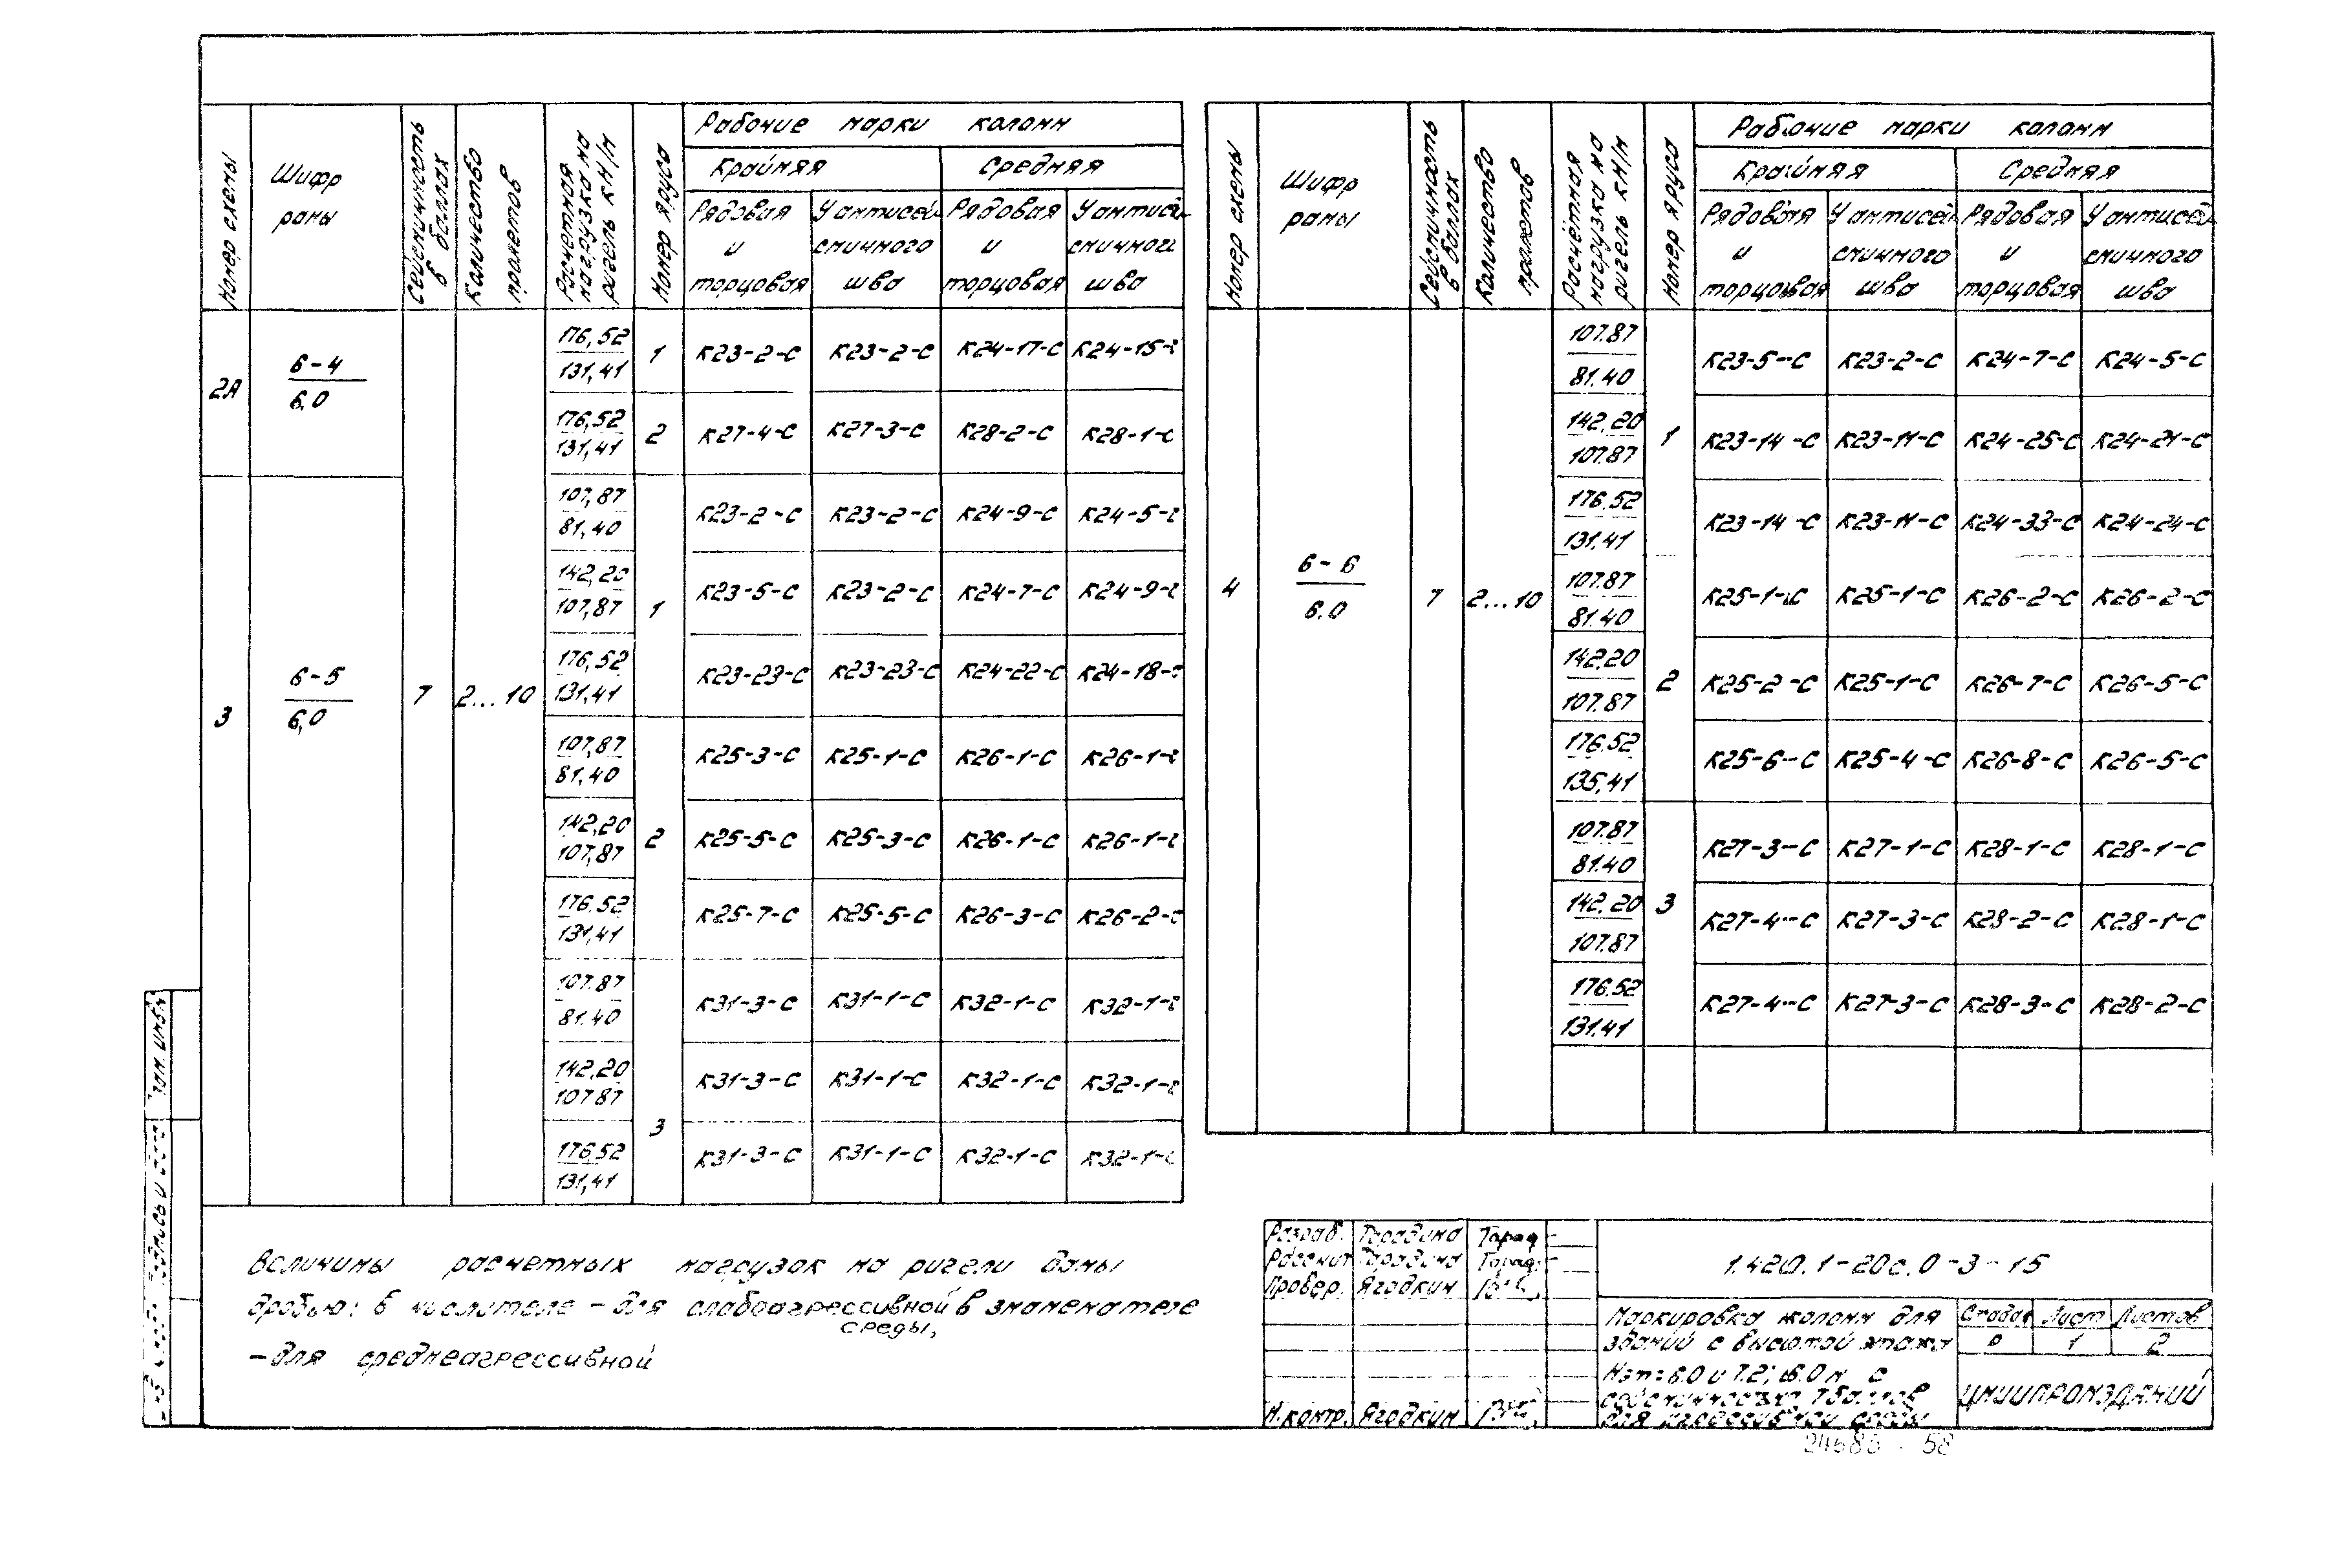 Номер схемы
Шифр рамы
Сейсмичность в баллах
Количество пролетов
Расчетная нагрузка на ригель кН/м
Номер яруса
Рабочие марки колонн
Крайняя Средняя
Рядовая и торцовая
У антисейсмичного шва
Рядовая и торцовая
У антисейсмичного шва
2А 6-4/6.0 7 2...10
176,52/131,41 1 К23-2-С К23-2-С К24-17-С К24-15-С
176,52/131,41 2 К27-4-С К27-3-С К28-2-С К28-1-С
3 6-5/6,0
107,87/81,40 1 К23-2-С К23-2-С К24-9-С К24-5-С
142,20/107,87 К23-5-С К23-2-С К24-7-С К24-9-С
176,52/131,41 К23-23-С К23-23-С К24-22-С К24-18-С
107,87/81,40 2 К25-3-С К25-1-С К26-1-С К26-1-С
142,20/107,87 К25-5-С К25-3-С К26-1-С К26-1-С
176.52/131,41 К25-7-С К25-5-С К26-3-С К26-2-С
107.87/81.40 3 К31-3-С К31-1-С К32-1-С К32-1-С
142,20/107.87 К31-3-С К31-1-С К32-1-С К32-1-С
176,52/131,41 К31-3-С К31-1-С К32-1-С К32-1-С
Номер схемы
Шифр рамы
Сейсмичность в баллах
Количество пролетов
Расчетная нагрузка на ригель кН/м
Номер яруса
Рабочие марки колонн
Крайняя Средняя
Рядовая и торцовая
У антисейсмичного шва
Рядовая и торцовая
У антисейсмичного шва
4 6-6/6.0 7 2...10
107.87/81.40 1 К23-5-С К23-2-С К24-7-С К24-5-С
142,20/107.87 К23-14-С К23-11-С К24-25-С К24-21-С
176.52/131.41 К23-14-С К23-11-С К24-33-С К24-24-С
107.87/81.40 2 К25-1-С К25-1-С К26-2-С К26-2-С
142.20/107.87 К25-2-С К25-1-С К26-7-С К26-5-С
176.52/135,41 К25-6-С К25-4-С К26-8-С К26-5-С
107.87/81.40 3 К27-3-С К27-1-С К28-1-С К28-1-С
142.20/107.87 К27-4-С К27-3-С К28-2-С К28-1-С
176.52/131.41 К27-4-С К27-3-С К28-3-С К28-2-С
Величины расчетных нагрузок на ригели даны
дробью: в числителе - для слабоагрессивной среды, в знаменателе
- для среднеагрессивной
Разраб.
Рассчит
Провер. Ягодкин
Н.контр. Ягодкин
1.420.1-20с.0-3-15
Маркировка колонн для
зданий с высотой этажа
Нэт=6.0 и 7.2; 6.0 м с
сейсмичностью 7 баллов
для агрессивной среды
Стадия Лист Листов
Р 1 2
ЦНИИПРОМЗДАНИЙ
Взам. инв.
Подпись и дата